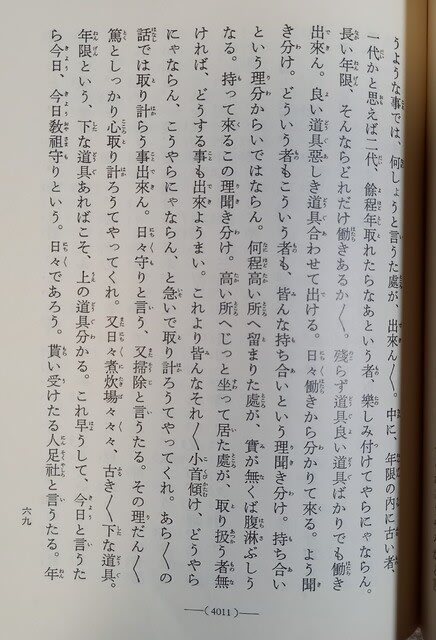 うような事では、何しょうと言うた處が、出來ん〳〵。中に、年限の内に古い者、
一代かと思えば二代、餘程年取れたらなあという者、樂しみ付けてやらにゃならん。
長い年限、そんならどれだけ働きあるか〳〵。殘らず道具良い道具ばかりでも働き
出來ん。良い道具惡しき道具合わせて出ける。日々働きから分かりて來る。よう聞
き分け。どういう者もこういう者も、皆んな持ち合いという理聞き分け。持ち合い
という理分からいではならん。何程高い所へ留まりた處が、實が無くば腹淋ぶしう
なる。持って來るこの理聞き分け。高い所へじっと坐って居た處が、取り扱う者無
ければ、どうする事も出來ようまい。これより皆んなそれ〳〵小首傾け、どうやら
にゃならん、こうやらにゃならん、と急いで取り計ろうてやってくれ。あら〳〵の
話では取り計らう事出來ん。日々守りと言う、又掃除と言うたる。その理だん〳〵
篤としっかり心取り計ろうてやってくれ。又日々煮炊場々々々、古き〳〵下な道具。
年限という、下な道具あればこそ、上の道具分かる。これ早うして、今日と言うた
ら今日、今日敎祖守りという。日々であろう。貰い受けたる人足社と言うたる。年
六九
―(4011)―